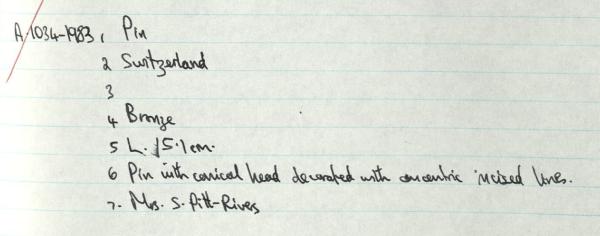 A/1034-1983, Pin
2 Switzerland
3
4 Bronze
5 L. 15.1cm.
6 Pin with conical head decorated with concentric incised lines.
7. Mrs. S. Pitt-Rivers